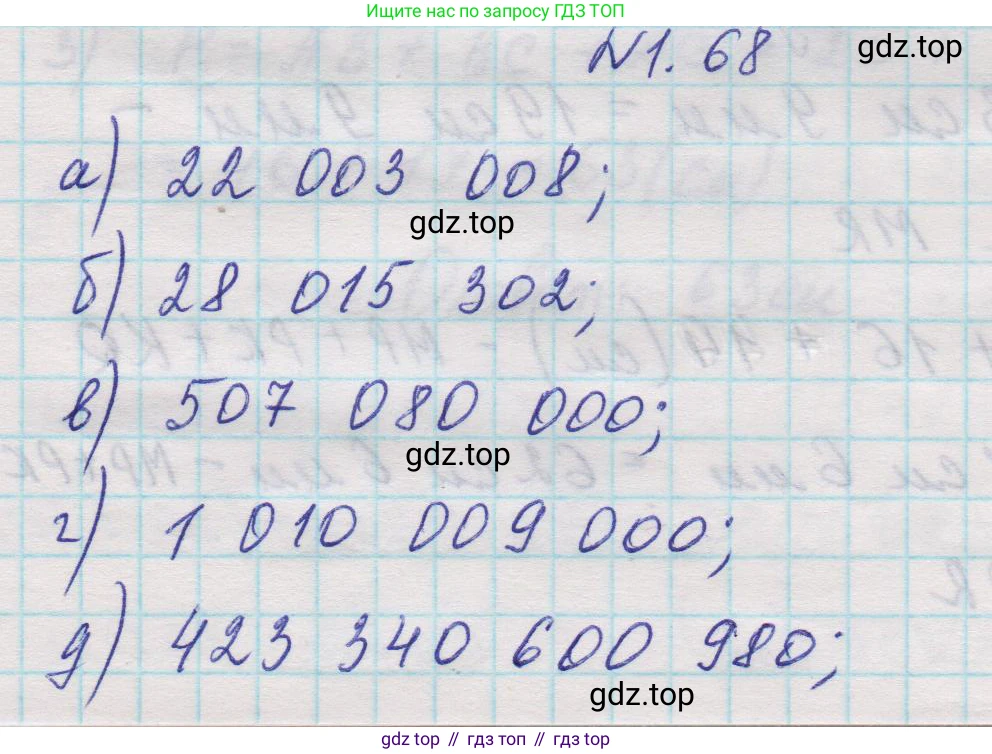 Ищите нас по запросу ГДЗ ТОП
№1. 68
gdz.top
а) 22 003 008;
gdz.top
б) 28 015 302;
в) 507 080 000;
gdz.top
г) 1 010 009 000;
д) 423 340 600 980;
gdz.top
gdz top // гдз топ // gdz top